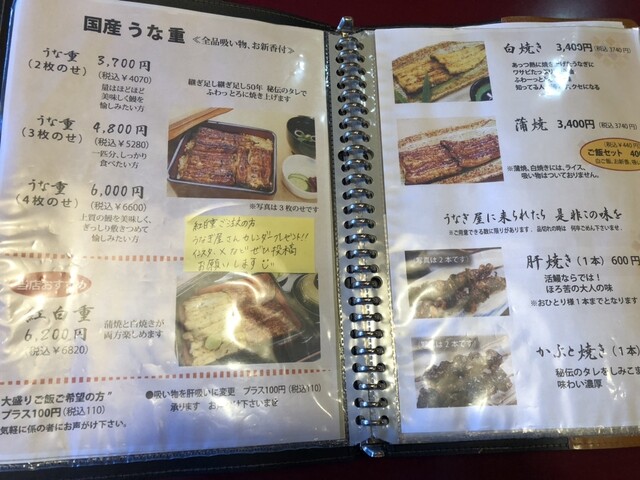 国産うな重 ≪全品吸い物、お新香付≫
うな重 3,700円
(2枚のせ) (税込￥4070)
量はほどほど
美味しく鰻を
愉しみたい方
継ぎ足し継ぎ足し50年 秘伝のタレで
ふわっとろに焼き上げます
うな重 4,800円
(3枚のせ) (税込￥5280)
一匹分、しっかり
食べたい方
※写真は3枚のせです
うな重 6,000円
(4枚のせ) (税込￥6600)
上質の鰻を美味しく、
ぎっしり敷きつめて
愉しみたい方
紅白重ご注文の方
うなぎ屋さんカレンダープレゼント!!
インスタ、Xなどぜひ投稿
お願いします
紅白重
6,200円
(税込￥6820)
蒲焼と白焼きが
両方楽しめます
大盛りご飯ご希望の方
プラス100円(税込110)
気軽に係の者にお声がけ下さい。
●吸い物を肝吸いに変更 プラス100円(税込110)
承ります
白焼き 3,400円(税込 3740円)
あっつ熱に焼き
ワサビたっ
ふわーっと
知ってる人
クセになる
蒲焼 3,400円(税込 3740円)
(税込￥440円)
ご飯セット
※蒲焼、白焼きには、ライス、
吸い物はついておりません。
うなぎ屋に来られたら 是非この味を
※ご用意できる数に限りがあります。
品切れの時は 何卒ご了承下さいませ。
写真は2本です
肝焼き(1本) 600円
活鰻ならでは！
ほろ苦の大人の味
※おひとり様1本までとなります
写真は3本です
かぶと焼き(1本)
秘伝のタレをしみこま
味わい濃厚